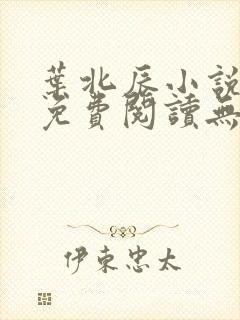 葉北辰小說
免費閱讀無
伊東忠太